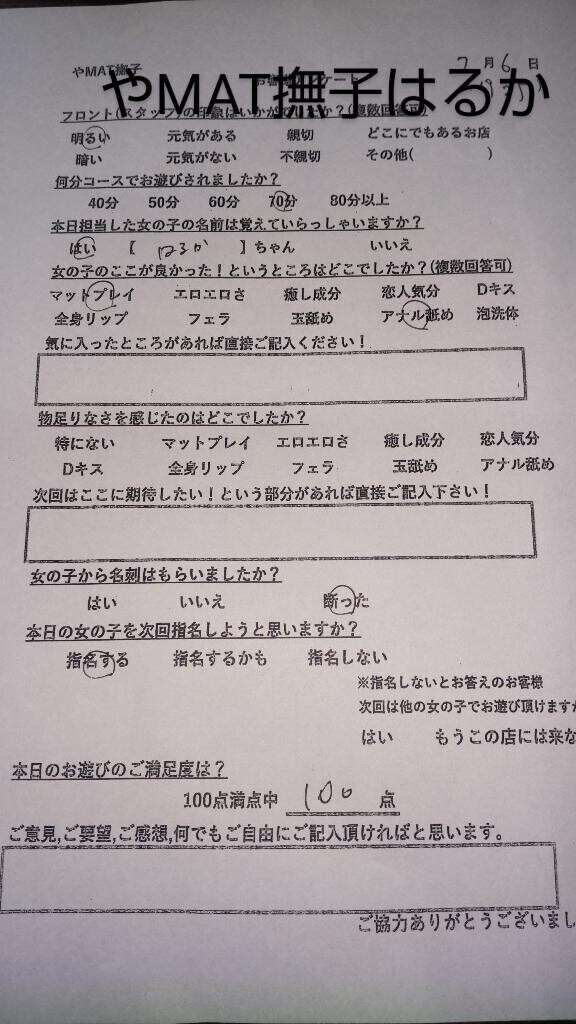 やMAT撫子
7月6日
やMAT撫子はるか
フロント(スタッフ)の印象はいかがでしたか？(複数回答可)
明るい 元気がある 親切 どこにでもあるお店
暗い 元気がない 不親切 その他( )
何分コースでお遊びされましたか？
40分 50分 60分 70分 80分以上
本日担当した女の子の名前は覚えていらっしゃいますか？
はい 【 はるか 】ちゃん いいえ
女の子のここが良かった！というところはどこでしたか？(複数回答可)
マットプレイ エロエロさ 癒し成分 恋人気分 Dキス
全身リップ フェラ 玉舐め アナル舐め 泡洗体
気に入ったところがあれば直接ご記入ください！
物足りなさを感じたのはどこでしたか？
特にない マットプレイ エロエロさ 癒し成分 恋人気分
Dキス 全身リップ フェラ 玉舐め アナル舐め
次回はここに期待したい！という部分があれば直接ご記入下さい！
女の子から名刺はもらいましたか？
はい いいえ 断った
本日の女の子を次回指名しようと思いますか？
指名する 指名するかも 指名しない
※指名しないとお答えのお客様
次回は他の女の子でお遊び頂けますか
はい もうこの店には来な
本日のお遊びのご満足度は？
100点満点中 100 点
ご意見,ご要望,ご感想,何でもご自由にご記入頂ければと思います。
ご協力ありがとうございまし